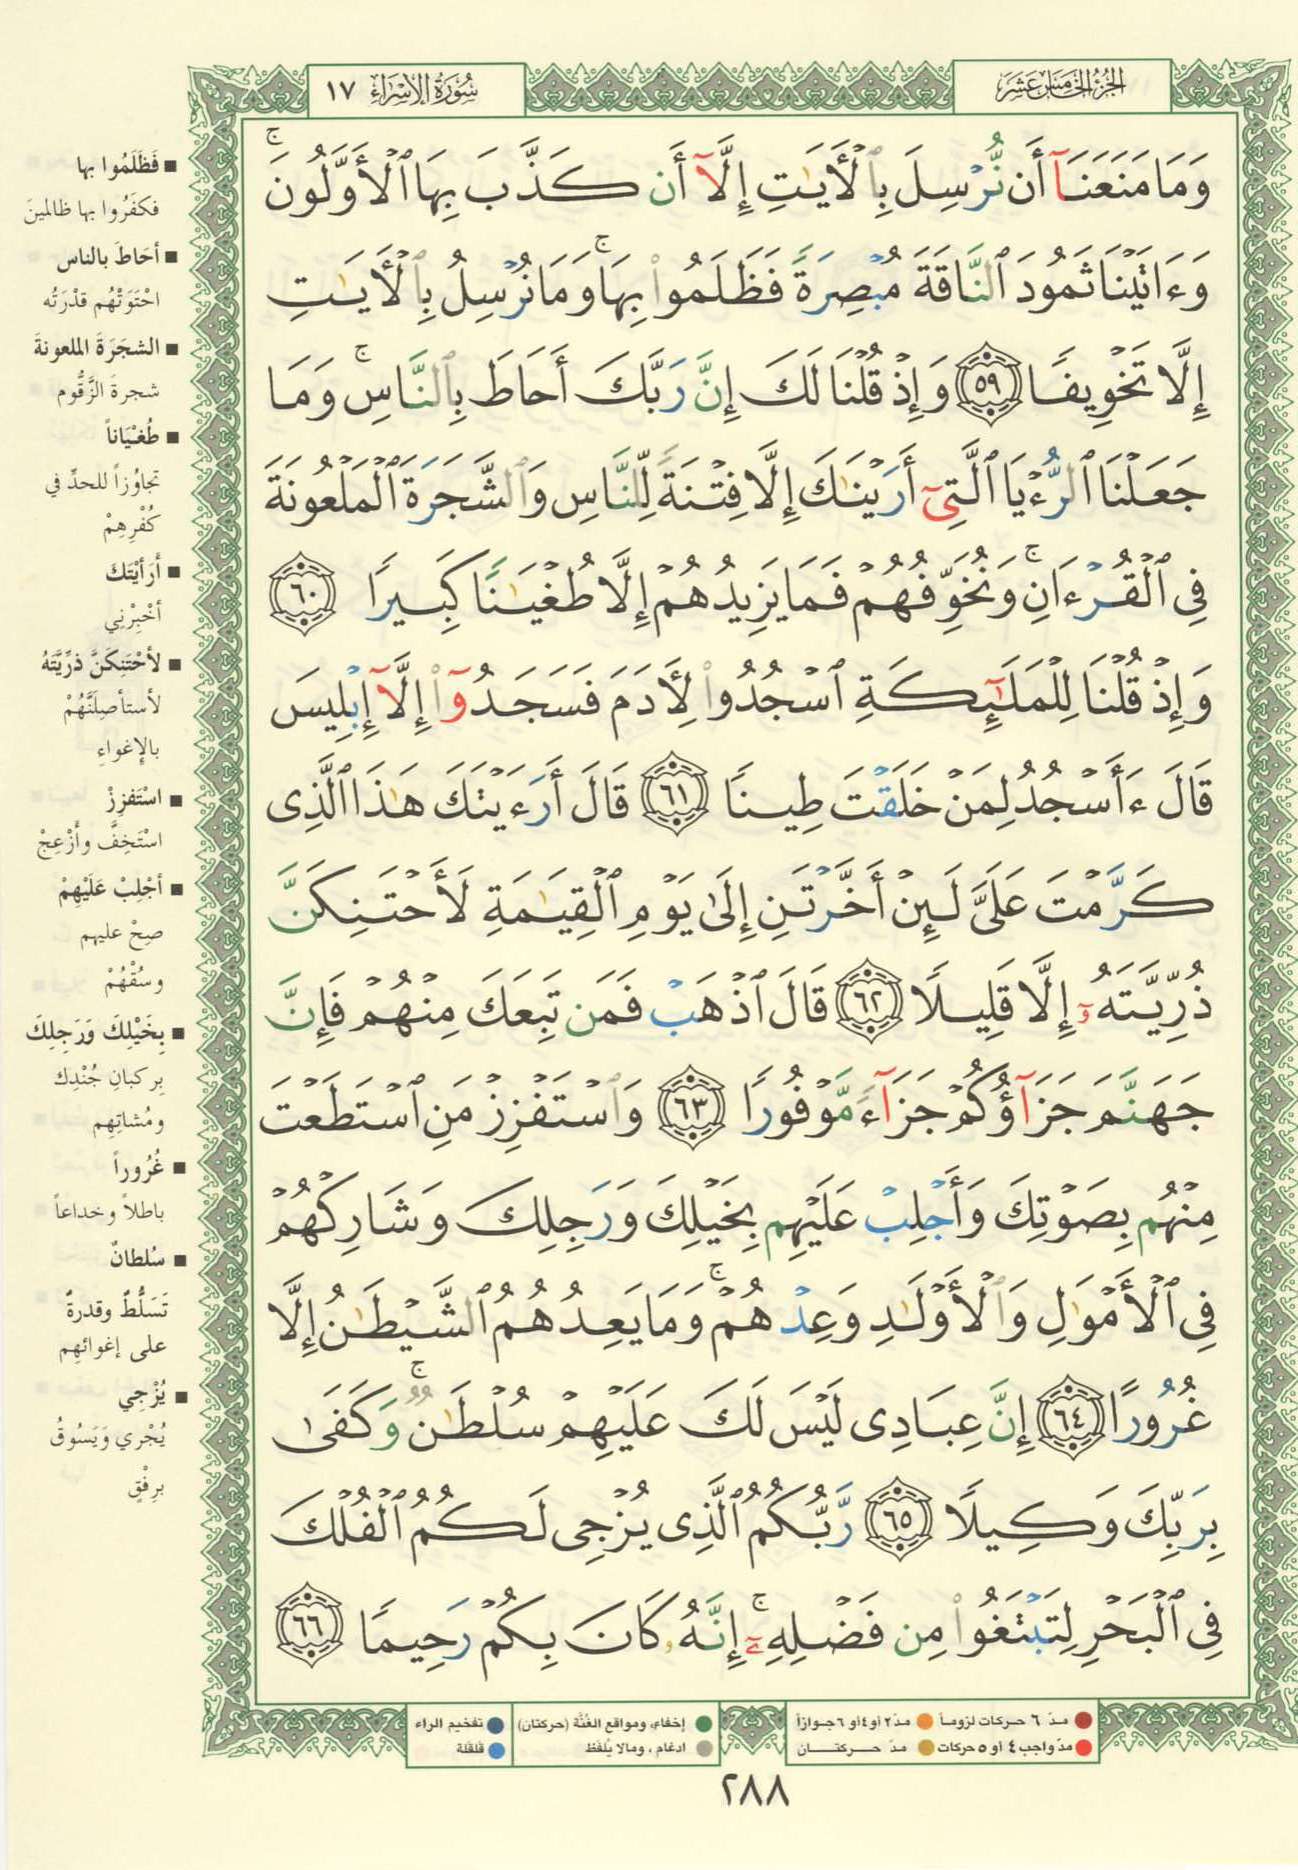 الجزء الخامس عشر
سورة الإسراء ١٧
وَمَا مَنَعَنَآ أَن نُّرْسِلَ بِٱلْأَيَٰتِ إِلَّآ أَن كَذَّبَ بِهَا ٱلْأَوَّلُونَ ۚ
وَءَاتَيْنَا ثَمُودَ ٱلنَّاقَةَ مُبْصِرَةً فَظَلَمُوا۟ بِهَا ۚ وَمَا نُرْسِلُ بِٱلْأَيَٰتِ
إِلَّا تَخْوِيفًا ٥٩ وَإِذْ قُلْنَا لَكَ إِنَّ رَبَّكَ أَحَاطَ بِٱلنَّاسِ ۚ وَمَا
جَعَلْنَا ٱلرُّءْيَا ٱلَّتِىٓ أَرَيْنَٰكَ إِلَّا فِتْنَةً لِّلنَّاسِ وَٱلشَّجَرَةَ ٱلْمَلْعُونَةَ
فِى ٱلْقُرْءَانِ ۚ وَنُخَوِّفُهُمْ فَمَا يَزِيدُهُمْ إِلَّا طُغْيَٰنًا كَبِيرًا ٦٠
وَإِذْ قُلْنَا لِلْمَلَٰٓئِكَةِ ٱسْجُدُوا۟ لِأَدَمَ فَسَجَدُوٓا۟ إِلَّآ إِبْلِيسَ
قَالَ ءَأَسْجُدُ لِمَنْ خَلَقْتَ طِينًا ٦١ قَالَ أَرَءَيْتَكَ هَٰذَا ٱلَّذِى
كَرَّمْتَ عَلَىَّ لَئِنْ أَخَّرْتَنِ إِلَىٰ يَوْمِ ٱلْقِيَٰمَةِ لَأَحْتَنِكَنَّ
ذُرِّيَّتَهُۥٓ إِلَّا قَلِيلًا ٦٢ قَالَ ٱذْهَبْ فَمَن تَبِعَكَ مِنْهُمْ فَإِنَّ
جَهَنَّمَ جَزَآؤُكُمْ جَزَآءً مَّوْفُورًا ٦٣ وَٱسْتَفْزِزْ مَنِ ٱسْتَطَعْتَ
مِنْهُم بِصَوْتِكَ وَأَجْلِبْ عَلَيْهِم بِخَيْلِكَ وَرَجِلِكَ وَشَارِكْهُمْ
فِى ٱلْأَمْوَٰلِ وَٱلْأَوْلَٰدِ وَعِدْهُمْ ۚ وَمَا يَعِدُهُمُ ٱلشَّيْطَٰنُ إِلَّا
غُرُورًا ٦٤ إِنَّ عِبَادِى لَيْسَ لَكَ عَلَيْهِمْ سُلْطَٰنٌ ۚ وَكَفَىٰ
بِرَبِّكَ وَكِيلًا ٦٥ رَّبُّكُمُ ٱلَّذِى يُزْجِى لَكُمُ ٱلْفُلْكَ
فِى ٱلْبَحْرِ لِتَبْتَغُوا۟ مِن فَضْلِهِۦٓ ۚ إِنَّهُۥ كَانَ بِكُمْ رَحِيمًا ٦٦
■ فَظَلَمُوا بها
فكفَرُوا بها ظالمينَ
■ أحَاطَ بالناس
احْتَوَتْهُم قدْرَتُه
■ الشجَرَةَ الملعونةَ
شجرةَ الزَّقُّوم
■ طُغْيَاناً
تجاوُزاً للحدِّ في
كُفْرِهِمْ
■ أَرَأيْتَكَ
أخْبِرْنِي
■ لأحْتَنِكَنَّ ذرِّيَّتَهُ
لأستأصِلَنَّهُمْ
بالإغواءِ
■ اسْتَفزِزْ
اسْتَخِفَّ وأزْعِجْ
■ أجْلِبْ عَلَيْهِمْ
صِحْ عليهم
وسُقْهُمْ
■ بِخَيْلِكَ وَرَجِلِكَ
بِركبانِ جُنْدِك
ومُشاتِهِم
■ غُرُوراً
باطلاً وخداعاً
■ سُلطانٌ
تَسَلُّطٌ وقدرةٌ
على إغوائهِم
■ يُزْجي
يُجْري وَيَسُوقُ
برِفْقٍ
مدّ ٦ حركات لزوماً
مدّ ٢ أو ٤ أو ٦ جوازاً
إخفاء، ومواقع الغُنَّة (حركتان)
تفخيم الراء
مدّ واجب ٤ أو ٥ حركات
مدّ حركتان
ادغام، ومالا يُلفَظ
قلقلة
٢٨٨